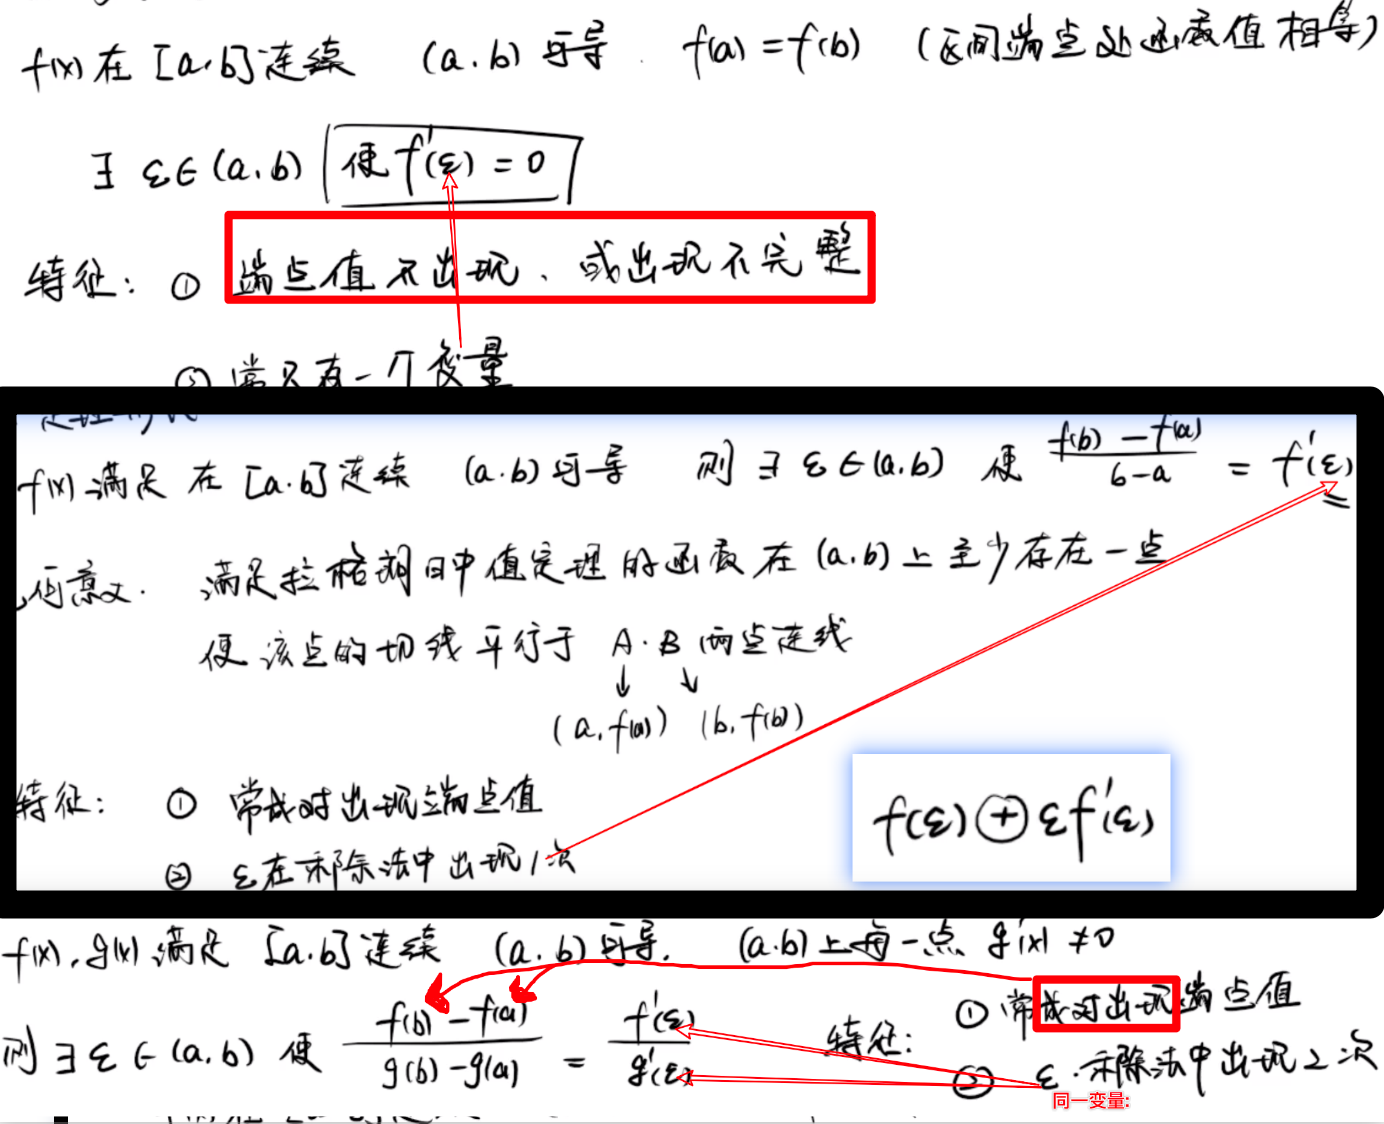 f(x)在[a.b]连续 (a.b)可导. f(a)=f(b) (区间端点处函数值相等)
∃ ε∈(a.b) 使f'(ε)=0
特征: ① 端点值不出现、或出现不完整
② 常只有一个变量
f(x)满足 在[a.b]连续 (a.b)可导 则∃ε∈(a.b) 使 \frac{f(b)-f(a)}{b-a} = f'(ε)
何意义. 满足拉格朗日中值定理的函数在(a.b)上至少存在一点
使该点的切线平行于 A.B 两点连线
↓ ↓
(a,f(a)) (b,f(b))
特征: ① 常成对出现端点值
f(ε)⊕εf'(ε)
② ε在乘除法中出现1次
f(x),g(x)满足 [a.b]连续 (a.b)可导, (a.b)上每一点 g'(x)≠0
则∃ε∈(a.b) 使 \frac{f(b)-f(a)}{g(b)-g(a)} = \frac{f'(ε)}{g'(ε)}
特征: ① 常成对出现端点值
② ε.乘除法中出现2次
同一变量: